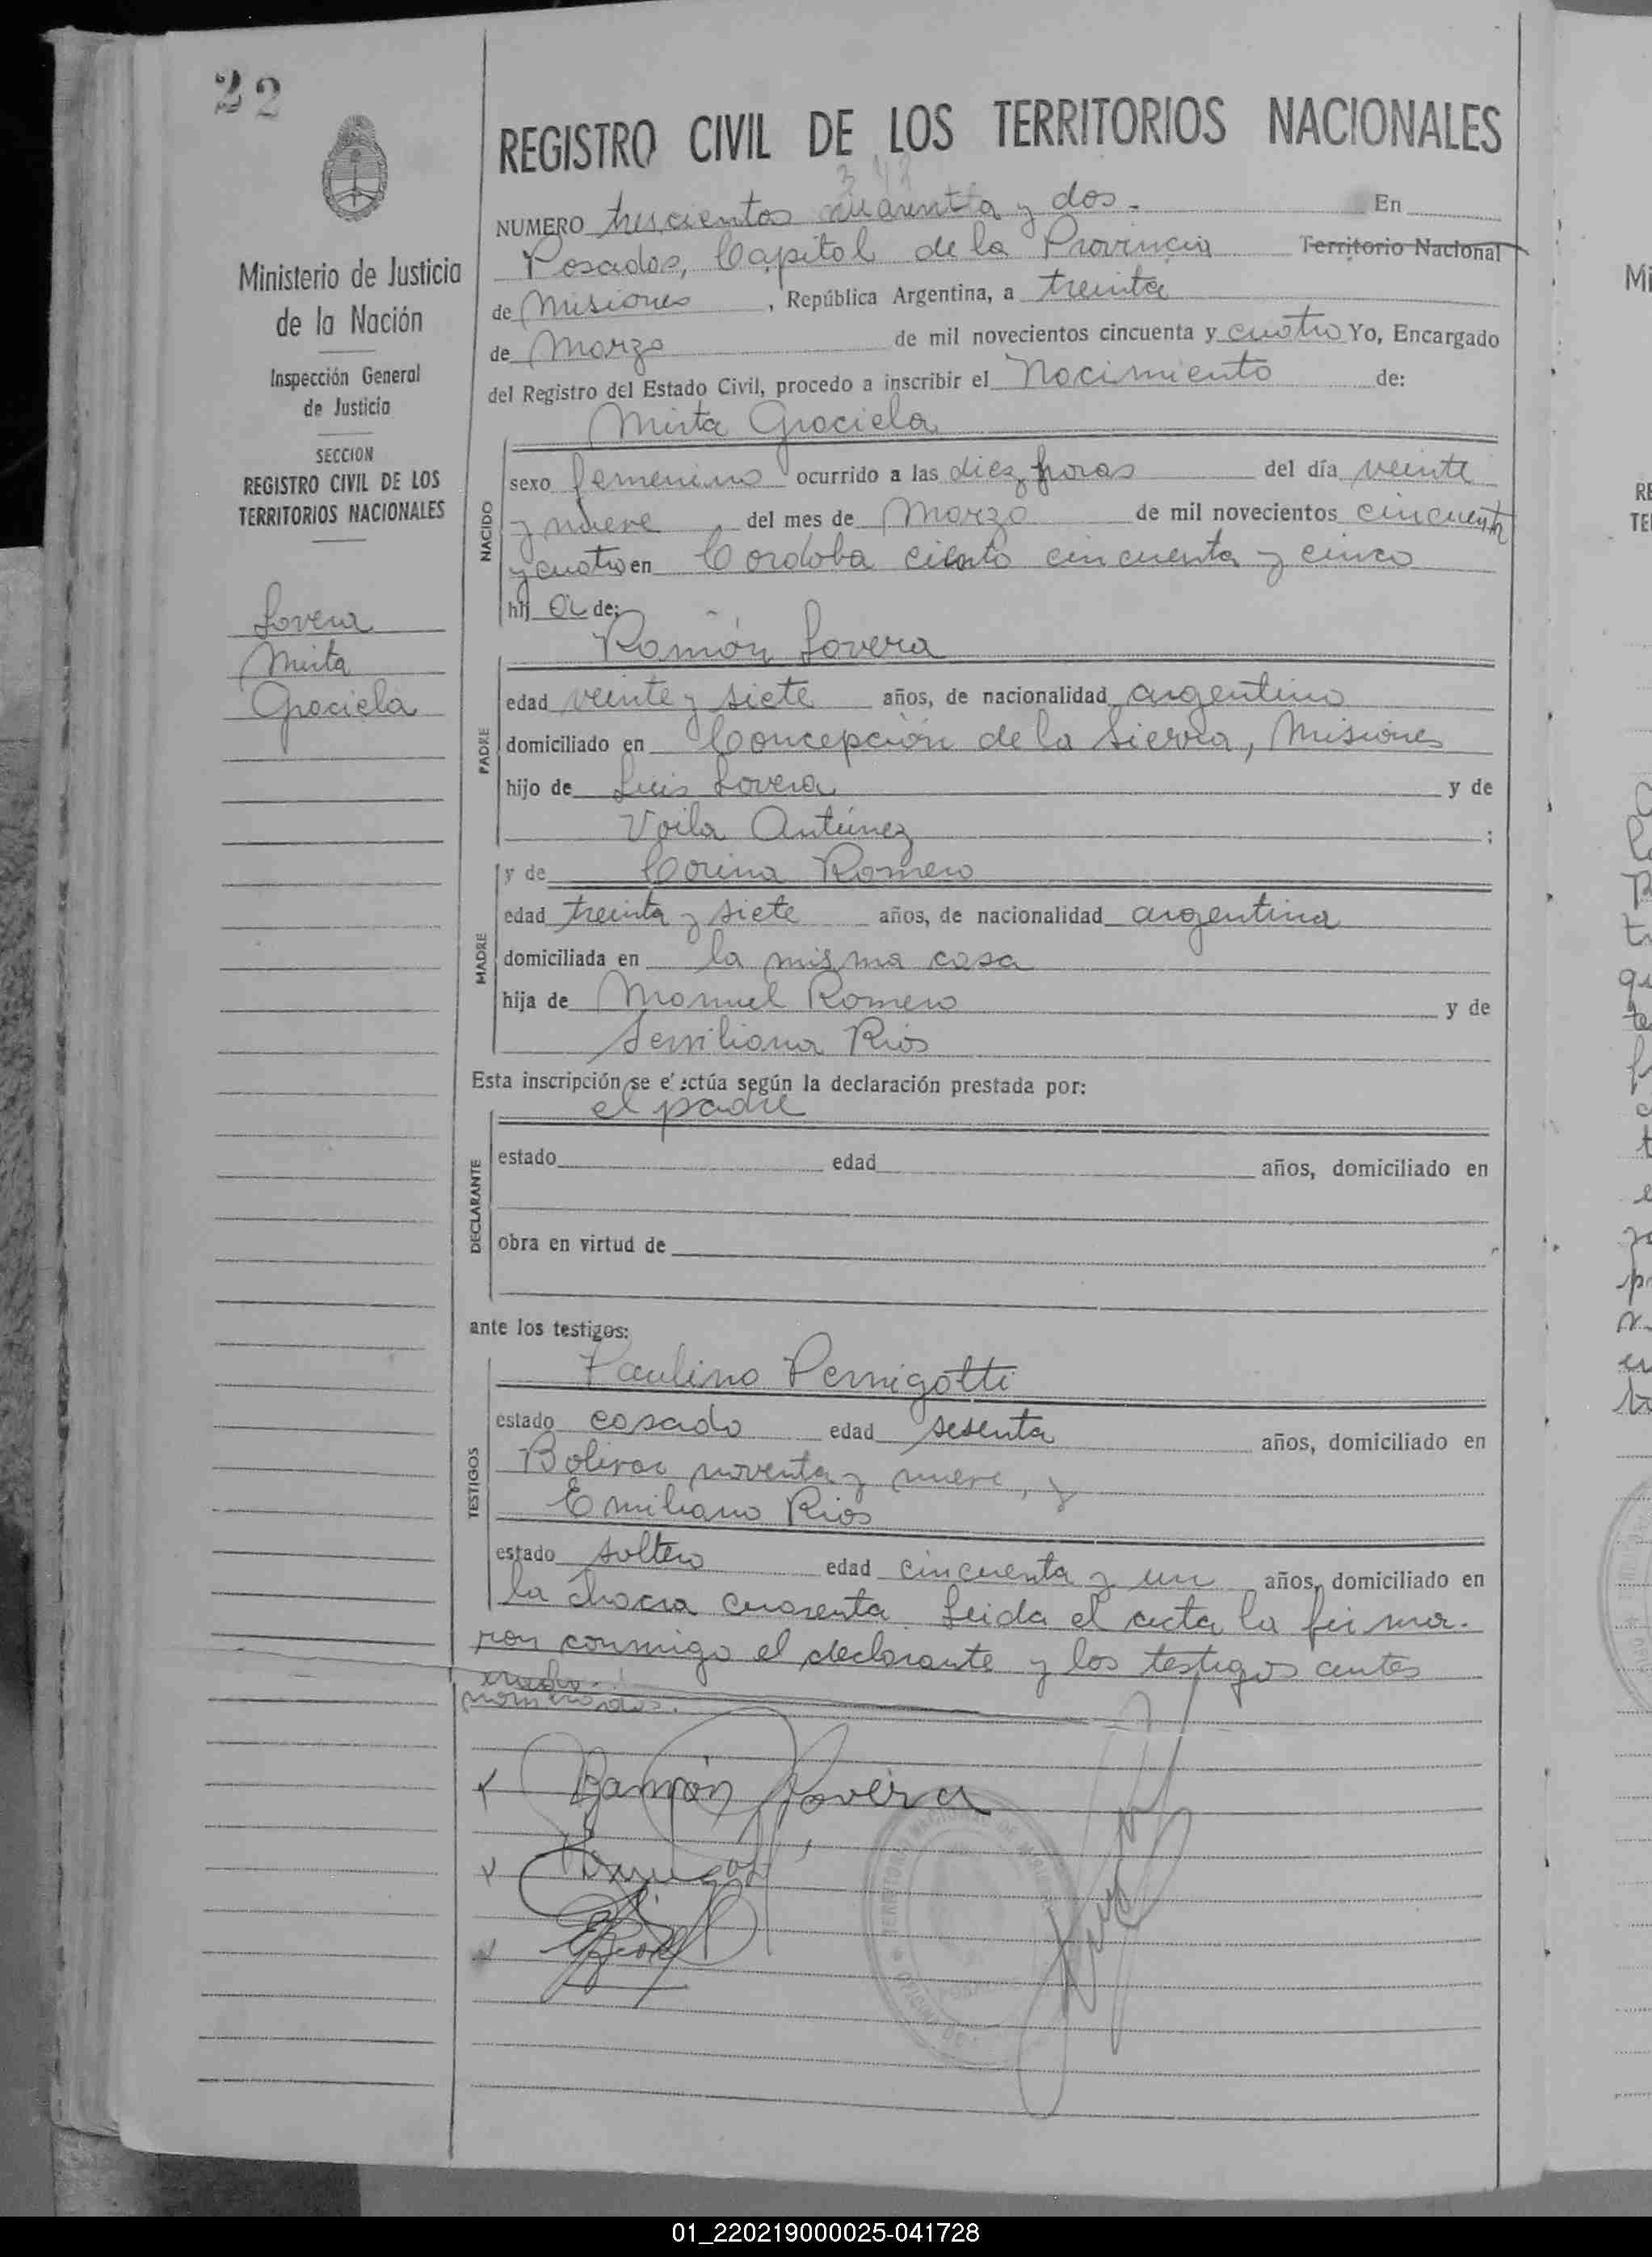 22
REGISTRO CIVIL DE LOS TERRITORIOS NACIONALES
342
NUMERO trescientos cuarenta y dos.- En
Posadas, Capital de la Provincia Territorio Nacional
de Misiones, República Argentina, a treinta
de Marzo de mil novecientos cincuenta y cuatro Yo, Encargado
del Registro del Estado Civil, procedo a inscribir el Nacimiento de:
Ministerio de Justicia
de la Nación
Inspección General
de Justicia
SECCION
REGISTRO CIVIL DE LOS
TERRITORIOS NACIONALES
Lovera
Mirta
Graciela
NACIDO
Mirta Graciela
sexo femenino ocurrido a las diez horas del día veinte
y nueve, del mes de Marzo de mil novecientos cincuenta
y cuatro en Cordoba ciento cincuenta y cinco
hij a de:
PADRE
Ramón Lovera
edad veinte y siete años, de nacionalidad argentino
domiciliado en Concepción de la Sierra, Misiones
hijo de Luis Lovera y de
Voila Antúnez ;
MADRE
y de Corina Romero
edad treinta y siete años, de nacionalidad argentina
domiciliada en la misma casa
hija de Manuel Romero y de
Rios
Esta inscripción se efectúa según la declaración prestada por:
DECLARANTE
el padre
estado edad años, domiciliado en
obra en virtud de
ante los testigos:
TESTIGOS
Paulino Pernigotti
estado casado edad sesenta años, domiciliado en
Bolivar noventa y nueve, y
Emiliano Rios
estado soltero edad cincuenta y un años, domiciliado en
la chacra cuarenta. Leida el acta la firma-
ron conmigo el declarante y los testigos antes
nombrados.
Ramón Lovera
TERRITORIO NACIONAL DE MISIONES
POSADAS
01_220219000025-041728